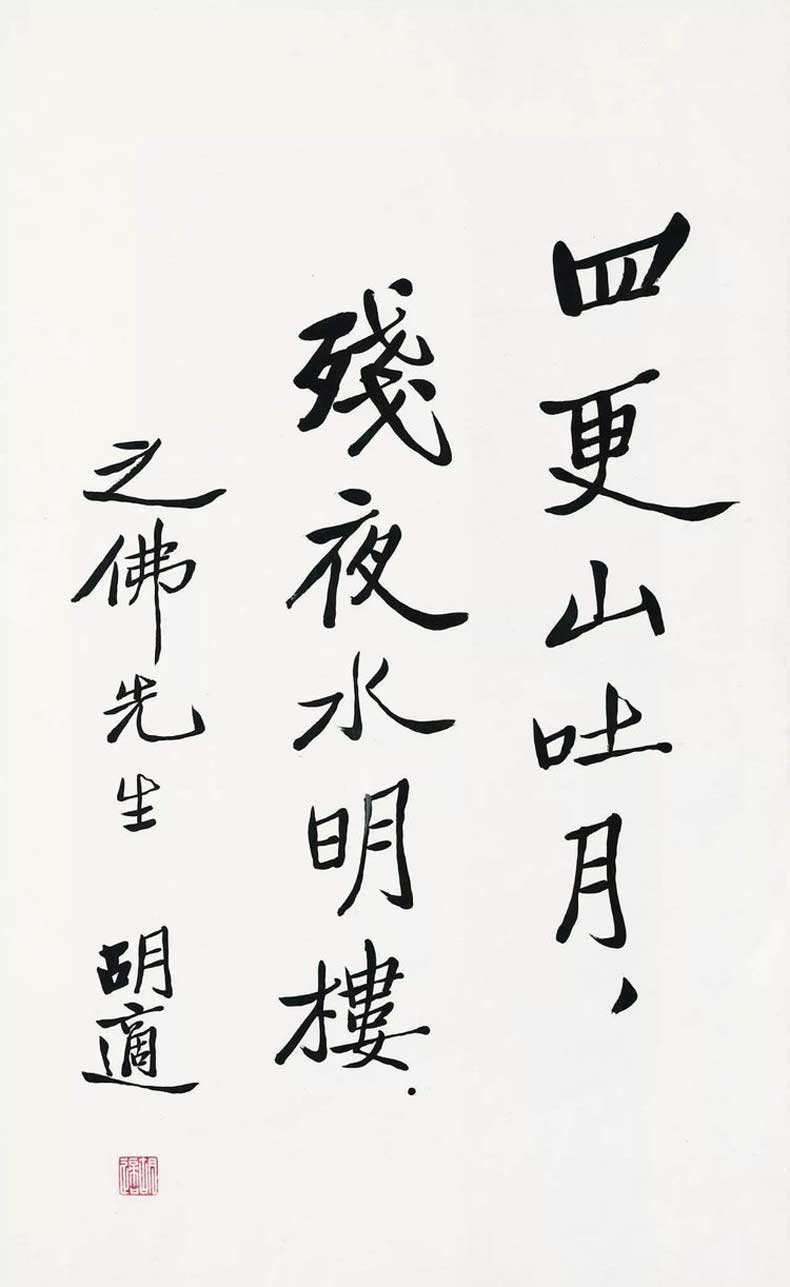 四更山吐月，
殘夜水明樓．
之佛先生　胡適